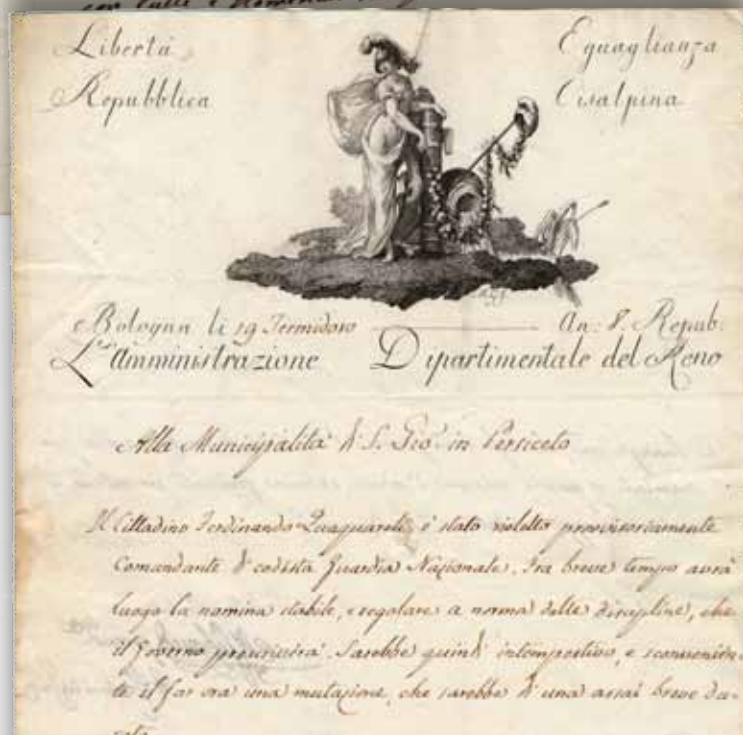 con tutte
Libertà Eguaglianza
Repubblica Cisalpina
Bologna li 19 Termidoro An: 8. Repub:
L'Amministrazione Dipartimentale del Reno
Alla Municipalità di S. Gio: in Persiceto
Il Cittadino Ferdinando Quaquarelli è stato rieletto provvisoriamente
Comandante di codesta Guardia Nazionale. Fra breve tempo avrà
luogo la nomina stabile, e regolare a norma delle discipline, che
il Governo prescriverà. Sarebbe quindi intempestivo, e sconvenien-
te il far ora una mutazione, che sarebbe di una assai breve du-
rata